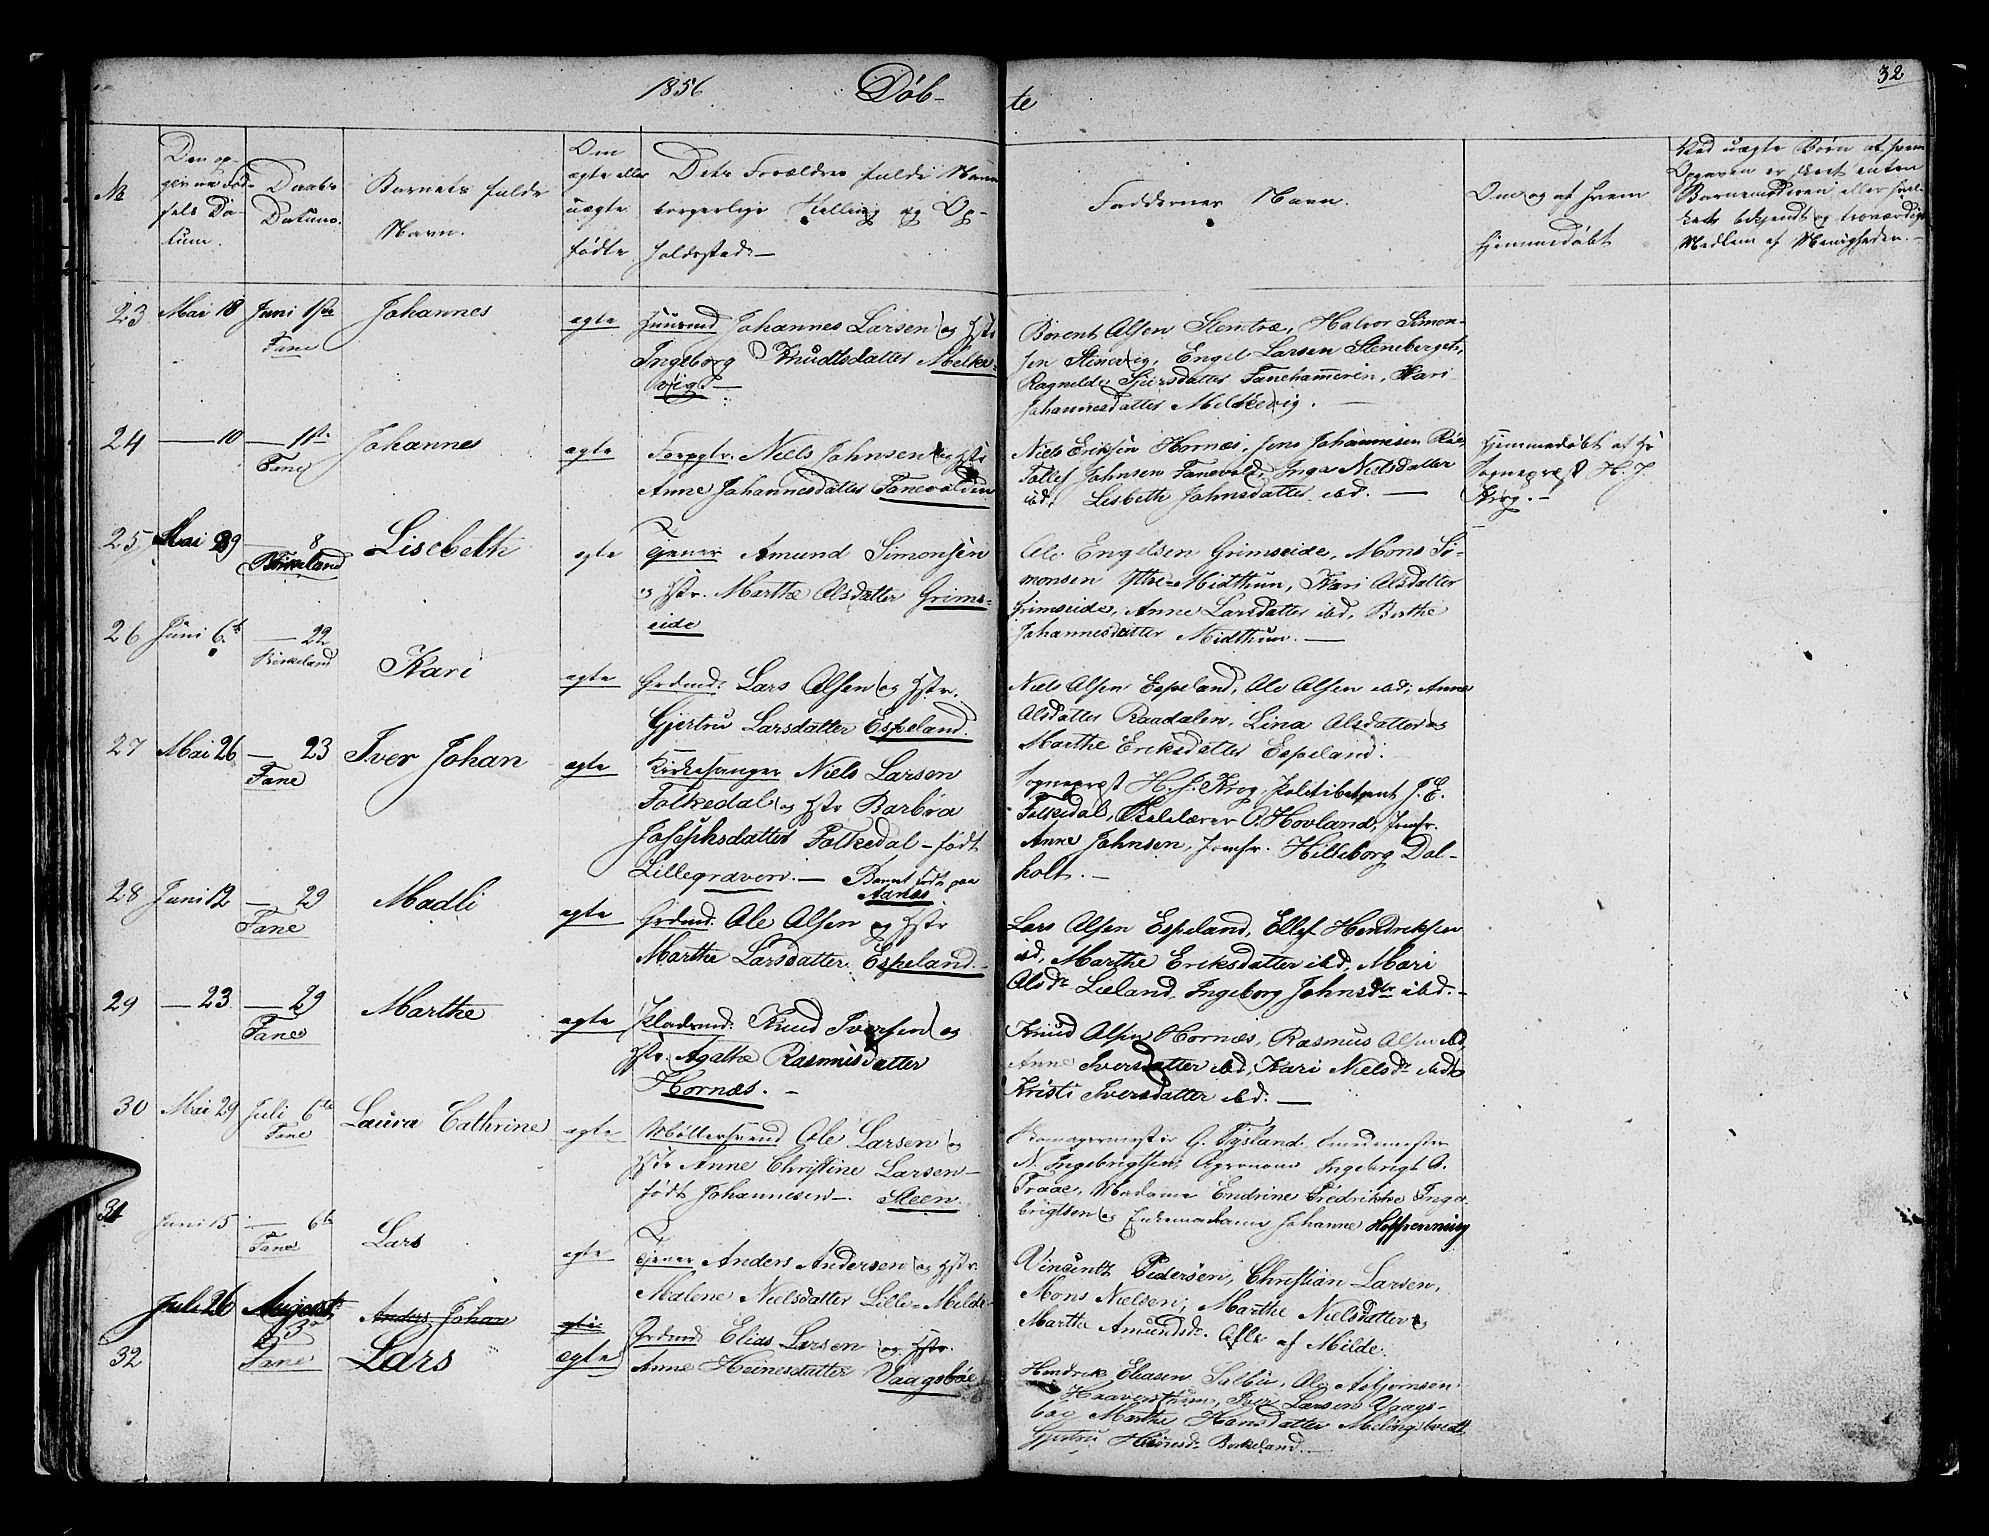 1856 Døb-
te
32
No
Den op-
givne Fød-
sels Da-
tum.
Daabs
Datum.
Barnets fulde
Navn.
Om
ægte eller
uægte
fødte
Dets Forældres fulde Navn
borgerlige Stilling og Op-
holdssted.—
Faddernes Navn.
Om og af hvem
hjemmedøbt
Ved uægte Børn af hvem
Opgaven er skeet enten
Barnemoderen eller
bekjendt og troværdigt
Medlem af Menigheden.—
23 Mai 18 Juni 1ste Johannes ægte Huusmd Johannes Larsen og Hstr
Fane
Ingeborg Knudtsdatter Melke-
vig.—
Berent Olsen Stentræ, Halvor Simon-
sen Steinevig, Engel Larsen Steneberget,
Ragnilde Gjersdatter Fanehammeren, Kari
Johannesdatter Melkevig.—
24 — 10 — 1ste Johannes ægte Forpgtr. Niels Johnsen og Hstr
Fane
Anne Johannesdatter Fanevolden
Niels Eriksen Hornæs, Jens Johannesen Røe,
Tollef Johnsen Fanevold, Inga Nielsdatter
ibd, Lisbeth Johnsdatter ibd.—
Hjemmedøbt af Hr
Sognepræst H. J.
Krog.—
25 Mai 29 — 8 Lisebeth ægte Tjener Amund Simonsen
Birkeland
og Hstr. Marthe Olsdatter Grims-
eide
Ole Engelsen Grimseide, Mons Si-
monsen Ytre-Midthun, Kari Olsdatter
Grimseide, Anne Larsdatter ibd, Berthe
Johannesdatter Midthun.—
26 Juni 6te — 22 Kari ægte Grdmd: Lars Olsen og Hstr.
Birkeland
Gjertru Larsdatter Espeland.
Niels Olsen Espeland, Ole Olsen ibd; Anne
Olsdatter Raadalen, Lina Olsdatter og
Marthe Eriksdatter Espeland.
27 Mai 26 — 23 Iver Johan ægte Kirkesanger Niels Larsen
Fane
Folkedal og Hstr Barbra
Josephsdatter Folkedal — født
Lillegraven.— Barnet født paa
Aadnæs
Sognepræst H. J. Krog, Politibetjent J. E.
Folkedal, Skolelærer O. Hovland, Jomfr.
Anne Johnsen, Jomfr. Hilleborg Dal-
holt.—
28 Juni 12 — 29 Madli ægte Grdmd: Ole Olsen og Hstr
Fane
Marthe Larsdatter Espeland.—
Lars Olsen Espeland, Ellef Hendriksen
ibd, Marthe Eriksdatter ibd, Mari
Olsdr Lieland, Ingeborg Johnsdtr ibd.—
29 — 23 — 29 Marthe ægte Pladsmd: Knud Iversen og
Fane
Hstr. Agathe Rasmusdatter
Hornæs.—
Knud Olsen Hornæs, Rasmus Olsen ibd
Anne Iversdatter ibd, Kari Nielsdr ibd
Kristi Iversdatter ibd.—
30 Mai 29 Juli 6te Laura Cathrine ægte Møllersvend Ole Larsen og
Fane
Hstr Anne Christine Larsen—
født Johannesen—. Steen.
G. Tysland,
N. Ingebrigtsen, Agronom Ingebrigt O.
Traae, Madame Endrine Fredrikke Inge-
brigtsen og Enkemadame Johanne Hoppenning
31 Juni 15 — 6te Lars ægte Tjener Anders Andersen og Hstr.
Fane
Malene Nielsdatter Lille-Milde.
Vincentz Pedersen, Christian Larsen,
Mons Nielsen, Marthe Nielsdatter og
Marthe Amundsdr. Alle af Milde.
32 Juli 26 August 3de Anders Johan ægte
Fane Lars ægte Grdmd Elias Larsen og Hstr.
Anne Heinesdatter Vaagsbøe
Hendrik Eliasen Salbu, Ole Asbjørnsen
Haaversthun, Iver Larsen Vaags-
bøe, Marthe Hansdatter
Gjertru Birkeland.—